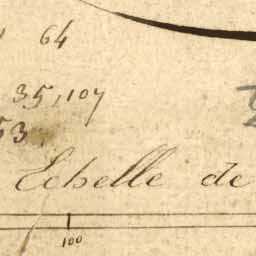 64
35,107
53
Echelle de
100